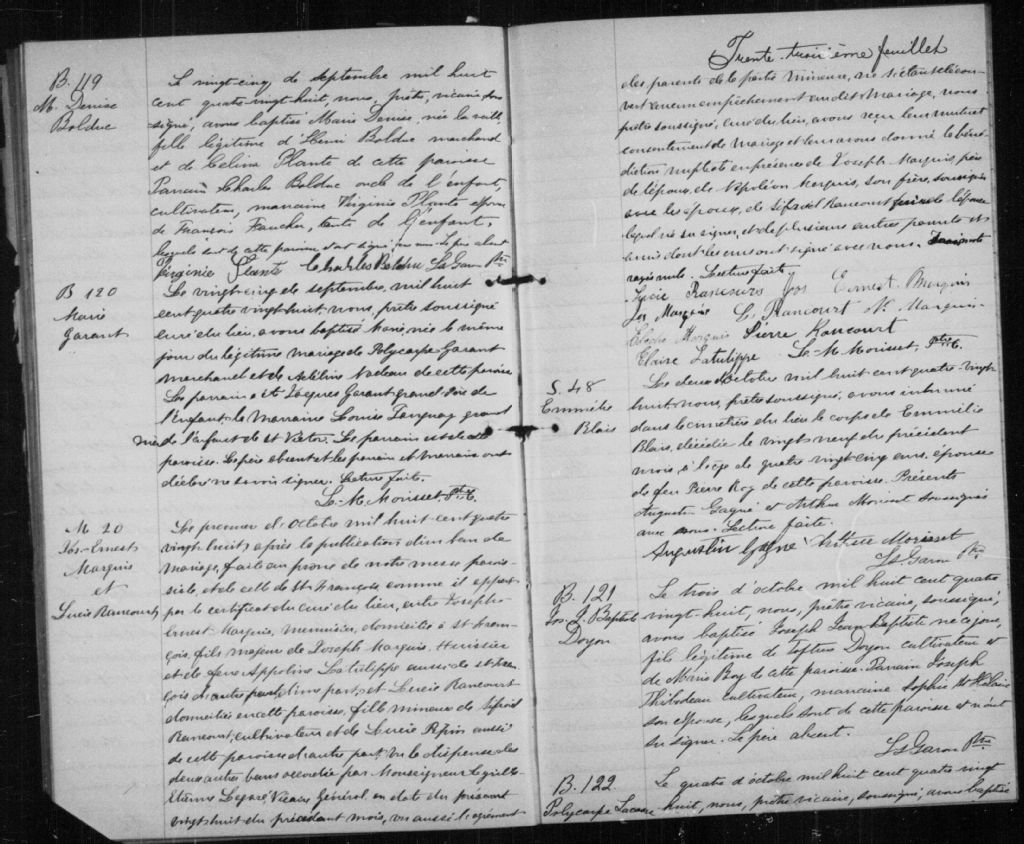 B. 119
M. Denise
Bolduc
Le vingt-cinq de septembre mil huit
cent quatre-vingt-huit, nous, prêtre, vicaire, sous
signé, avons baptisé Marie Denise, née la veille,
fille légitime d'Henri Bolduc marchand
et de Celina Plante de cette paroisse
Parrain Charles Bolduc oncle de l'enfant,
cultivateur, marraine Virginie Plante épouse
de François Faucher, tante de l'enfant,
lesquels sont de cette paroisse et ont signé avec nous. Le père absent
Virginie Plante Charles Bolduc Ls Garon Ptre
B 120
Marie
Garant
Le vingt-cinq de septembre, mil huit
cent quatre vingt-huit, nous, prêtre soussigné
curé du lieu, avons baptisé Marie, née le même
jour du légitime mariage de Polycarpe Garant
marchand et de Adéline Nadeau de cette paroisse
Le parrain a été Jacques Garant grand-père de
l'enfant, la Marraine Louise Tanguay grand
mère de l'enfant de St Victor. Le parrain est de cette
paroisse. Le père absent et les parrain et marraine ont
déclaré ne savoir signer. Lecture faite.
L. M. Morisset Ptre C.
M 20
Jos-Ernest
Marquis
et
Lucie Rancourt
Le premier d'Octobre mil huit-cent quatre
vingt-huit, après la publication d'un ban de
mariage, faite au prône de notre messe parois-
siale, et de celle de St François comme il appert
par le certificat du curé du lieu, entre Joseph
Ernest Marquis, Menuisier, domicilié à St Fran-
çois, fils majeur de Joseph Marquis, Huissier
et de feue Appoline Latulippe aussi de St Fran-
çois d'autre part, d'une part; et Lucie Rancourt
domiciliée en cette paroisse, fille mineure de Sifroid
Rancourt, cultivateur et de Lucie Pépin aussi
de cette paroisse d'autre part; vu la dispense des
deux autres bans accordée par Monseigneur Cyrille
Etienne Légaré, Vicaire Général, en date du présent
vingt-huit du précédent mois, vu aussi l'agrément
Trente-troisième feuillet
des parents de la partie mineure, ne s'étant décou-
vert aucun empêchement au dit Mariage, nous
prêtre soussigné, curé du lieu, avons reçu leur mutuel
consentement de Mariage et leur avons donné la béné-
diction nuptiale en présence de Joseph Marquis, père
de l'époux, de Napoléon Marquis, son frère, soussignés
avec les époux, de Sifroid Rancourt père de l'épouse
lequel n'a su signer, et de plusieurs autres parents et
amis dont les uns ont signé avec nous. Trois mots
rayés nuls. Lecture faite.
Lucie Rancourt Jos Ernest Marquis
Jos Marquis L. Rancourt N. Marquis
Elodie Marquis Pierre Rancourt
Elaire Latulippe L. M. Morisset, Ptre C.
S. 48
Emmélie
Blais
Le deux d'Octobre mil huit cent quatre-vingt-
huit, nous, prêtre soussigné, avons inhumé
dans le cimetière du lieu le corps de Emmélie
Blais, décédée le vingt-neuf du précédent
mois, à l'âge de quatre-vingt-cinq ans, épouse
de feu Pierre Roy de cette paroisse. Présents
Augustin Gagné et Arthur Morisset soussignés
avec nous. Lecture faite.
Augustin Gagné Arthur Morisset
Ls. Garon Ptre
B. 121
Jos. J. Baptiste
Doyon
Le trois d'octobre mil huit cent quatre
vingt-huit, nous, prêtre vicaire, soussigné,
avons baptisé Joseph Jean Baptiste né ce jour,
fils légitime de Doyon cultivateur et
de Marie Roy de cette paroisse. Parrain Joseph
Thibodeau cultivateur, marraine Sophie St Hilaire
son épouse, lesquels sont de cette paroisse et n'ont
su signer. Le père absent.
Ls Garon Ptre
B. 122
Polycarpe Lacasse
Le quatre d'octobre mil huit cent quatre vingt
huit, nous, prêtre vicaire, soussigné, avons baptisé